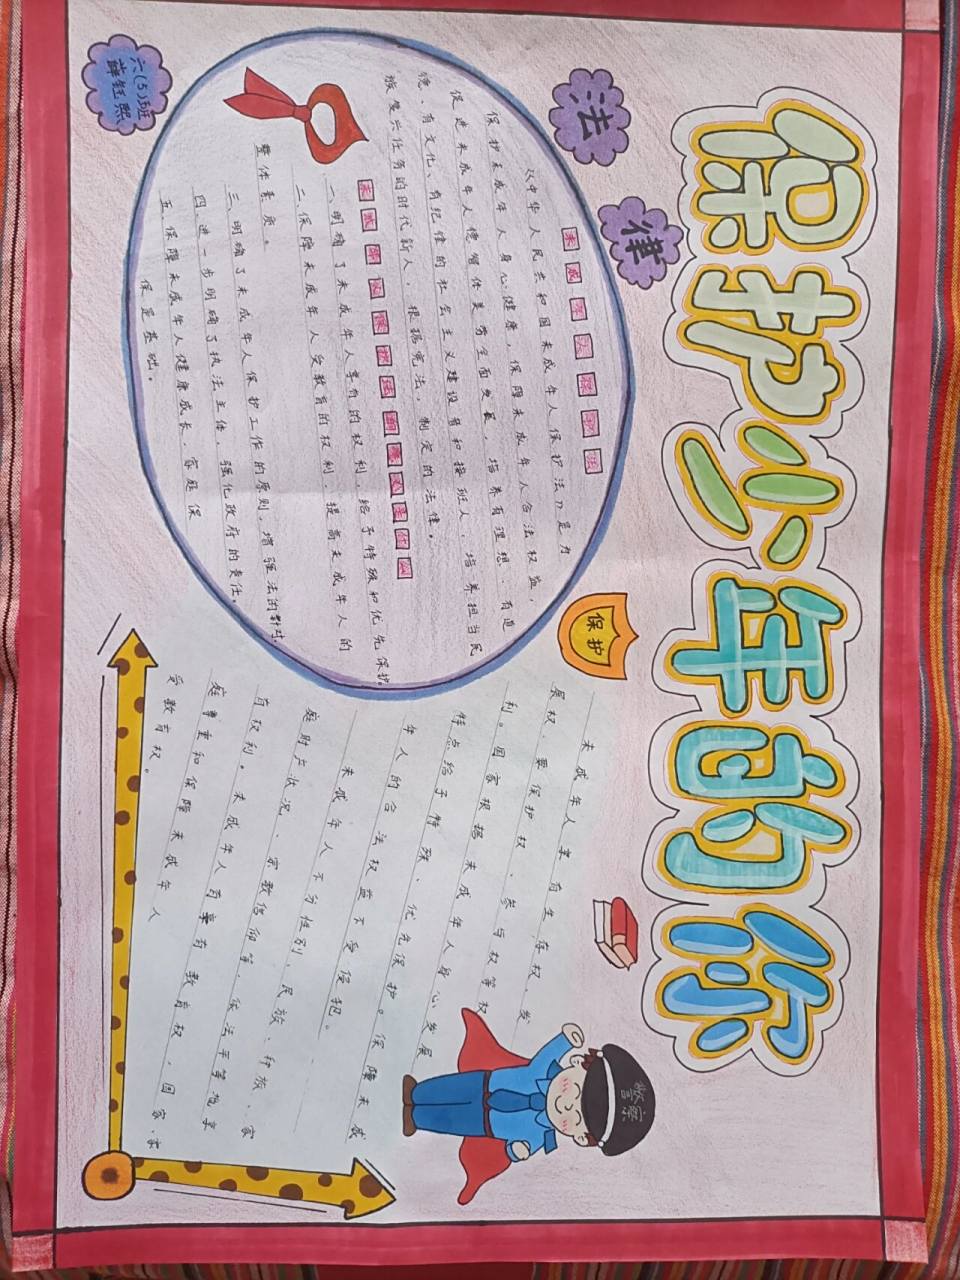 保护少年的你
法律
六(5)班
薛钰熙
未成年人保护法
《中华人民共和国未成年人保护法》是为
保护未成年人身心健康，保障未成年人合法权益，
促进未成年人德智体美劳全面发展，培养有理想、有道
德、有文化、有纪律的社会主义建设者和接班人，培养担当民
族复兴任务的时代新人，根据宪法，制定的法律。
一、明确了未成年人享有的权利，给予特殊和优先保护。
二、保障未成年人受教育的权利，提高未成年人的
整体素质。
三、明确了未成年人保护工作的原则，增强法的
四、进一步明确了执法主体，强化政府的责任。
五、保障未成年人健康成长，家庭保
保是基础。
保护
未成年人享有生存权、发
展权、要保护权、参与权等权
利。国家根据未成年人身心发展
特点给予特殊、优先保护。保障未成
年人的合法权益不受侵犯。
未成年人不分性别、民族、种族、家
庭财产状况、宗教信仰等，依法平等地享
有权利。未成年人有享有教育权，国家家
庭尊重和保障未成年人
受教育权。
警察